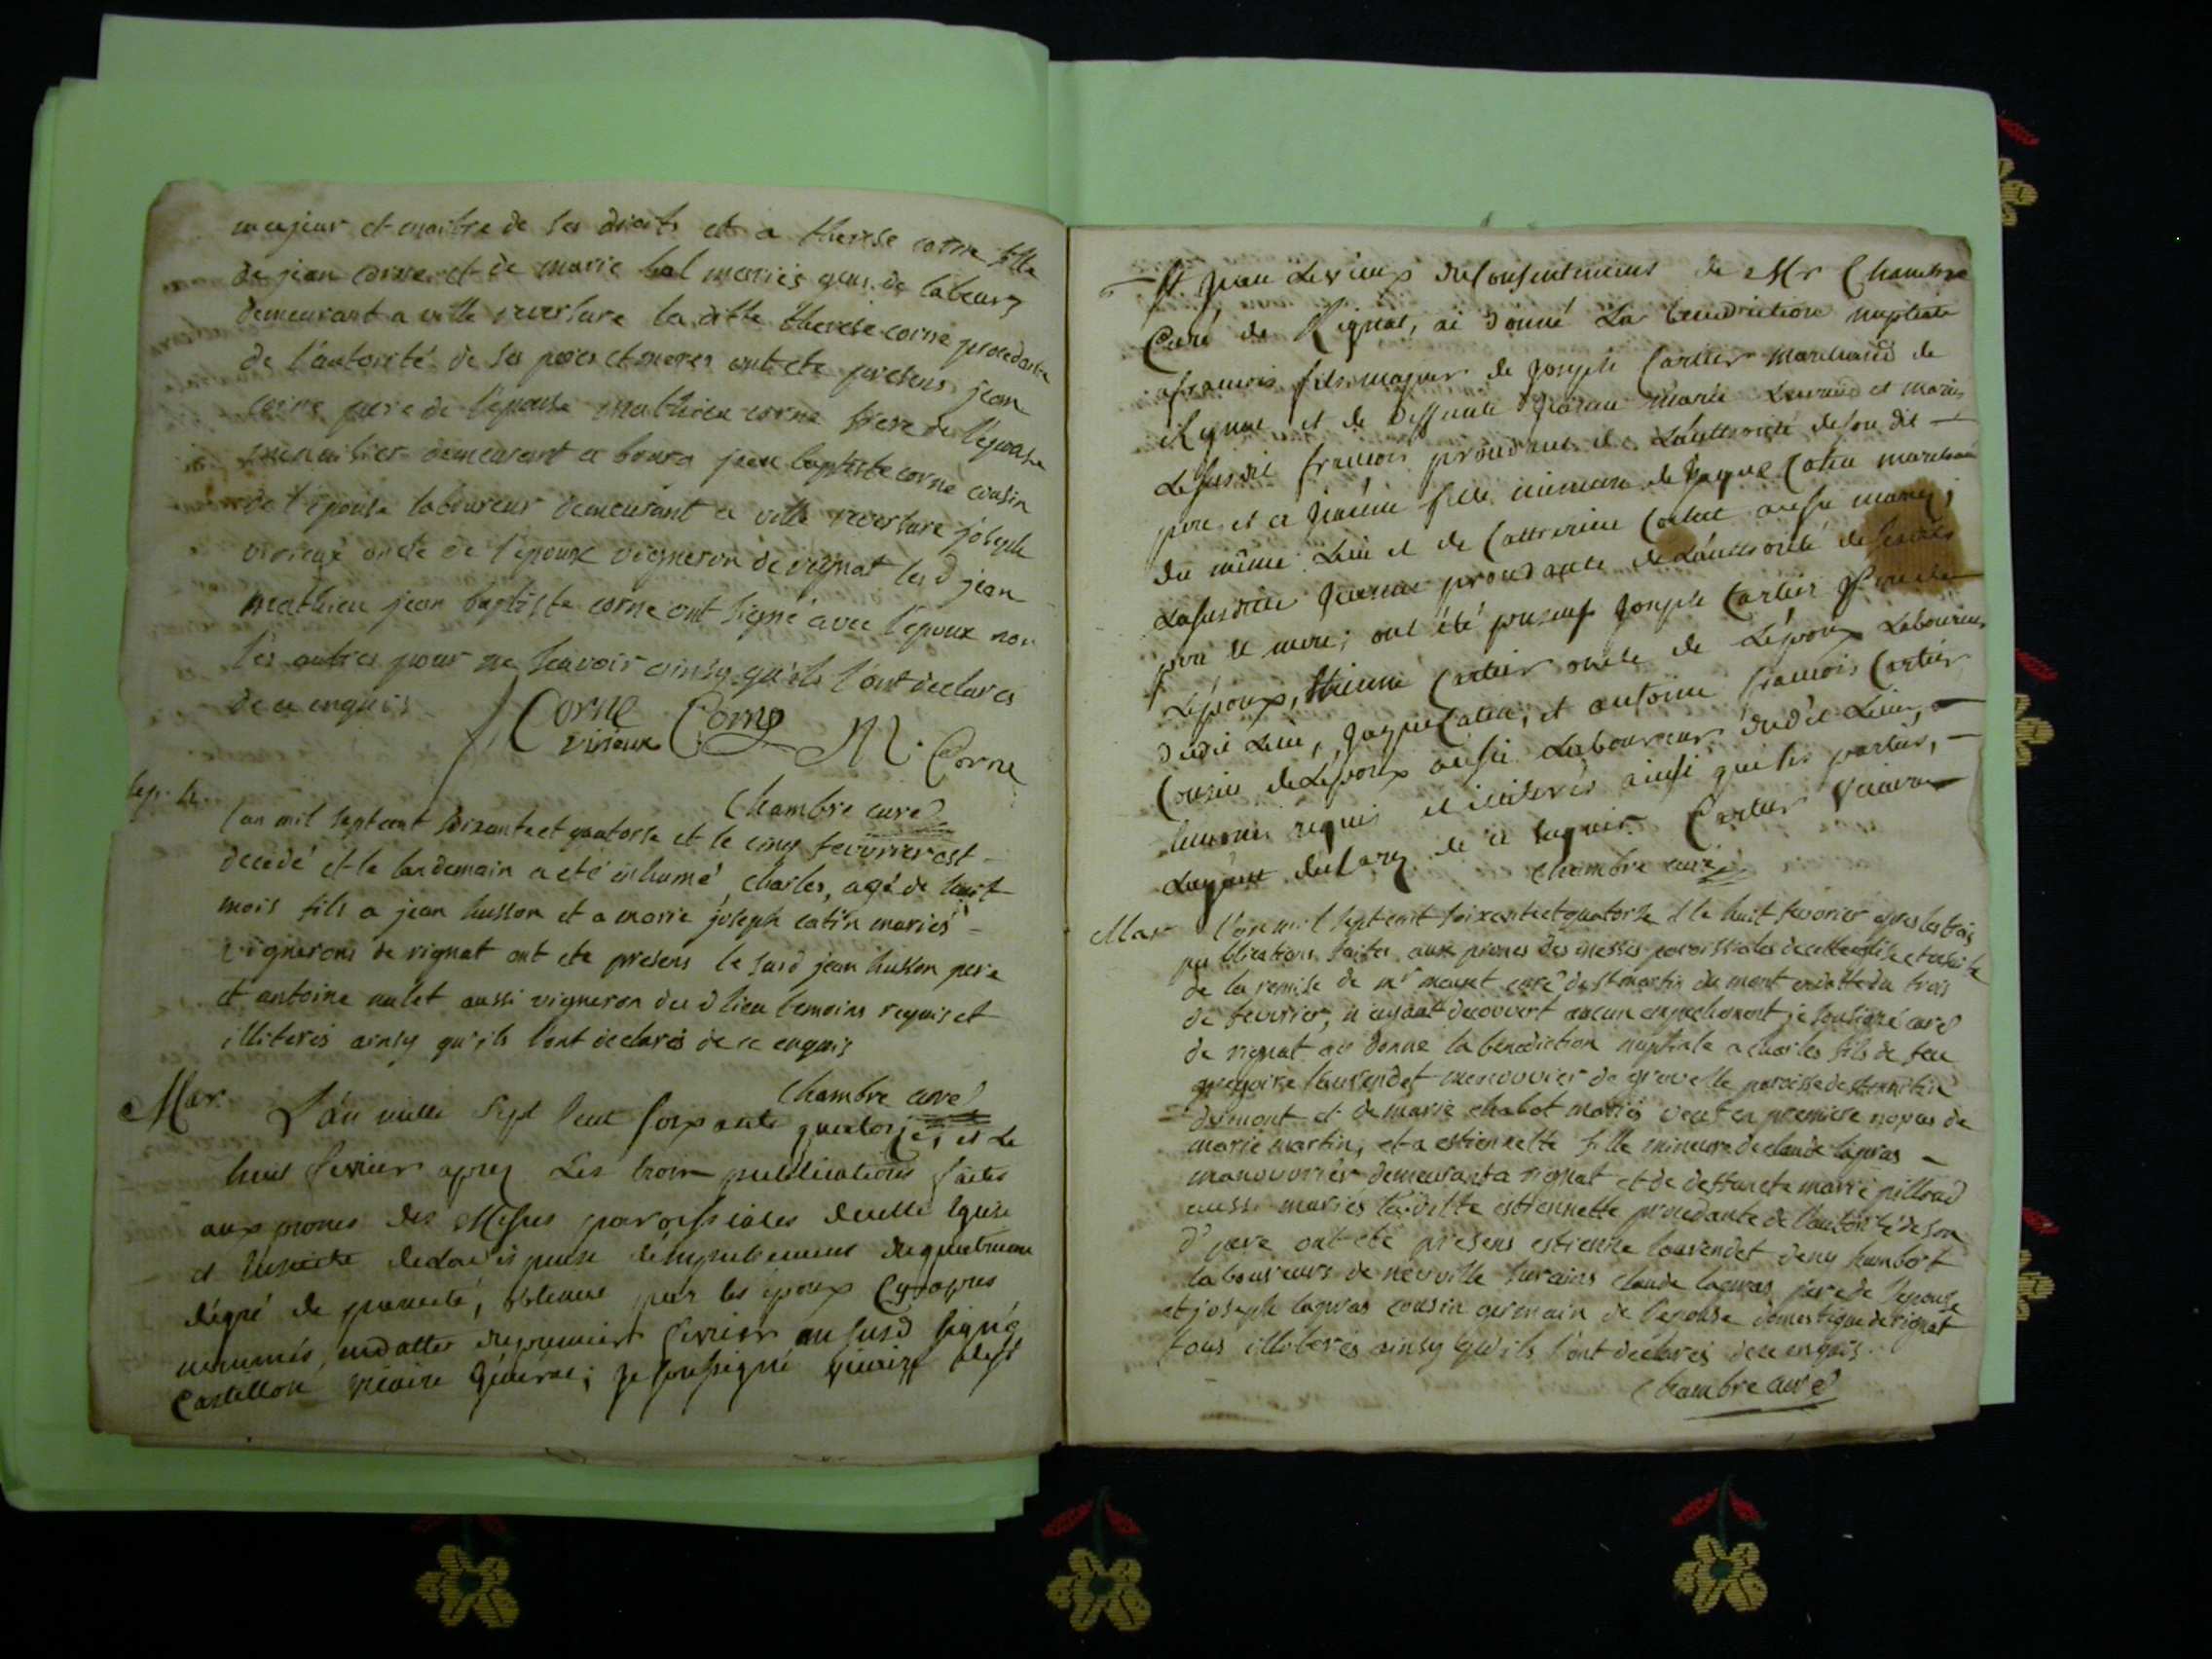 majeur et maitre de ses droits et a therese corne fille
de jean corne et de marie bal mariés gens de labeurs
demeurant a ville reversure la ditte therese corne procedante
de l'autorité de ses peres et meres ont ete presens jean
corne pere de l'epouse mathieu corne frere de l'epouse
menuisier demeurant a bourg jean baptiste corne cousin
de l'epouse laboureur demeurant a ville reversure joseph
vineux oncle de l'epoux vigneron de rignat les d jean
mathieu jean baptiste corne ont signé avec l'epoux non
les autres pour ne sçavoir ainsy qu'ils l'ont declarés
de ce enquis
Corne Corne
vineux M. Corne
sep.
chambre curé
l'an mil sept cent soixante et quatorse et le cinq fevvrier est
decedé et le landemain a eté inhumé, charles, agé de huit
mois fils a jean husson et a marie joseph catin mariés
vignerons de rignat ont ete presens le susd jean husson pere
et antoine nulet aussi vigneron du d lieu temoins requis et
illiterés ainsy qu'ils l'ont declarés de ce enquis
chambre curé
Mar. L'an mille sept cent soixante quatorze, et le
huit fevrier aprez les trois publications faites
aux prones des Messes paroissiales de cette Eglise
et de la dispense d'empechement du quatrieme
dégré de parenté, obtenue par les epoux cy apres
nommés, en datte du premier fevrier au susd signé
Castillon vicaire général; je soussigné vicaire de
St Jean Le vieux du consentement de Mr Chambre
Curé de Rignat, ai donné La benediction nuptiale
a francois fils majeur de Joseph Cartier marchand de
Rignat et de deffunte marie et mariés
Le susdit francois procedant de L'authorité de son dit
pere et a fille mineure de Jaque Catin marchand
du même Lieu et de Catterine aussi mariés,
La susditte procedante de L'authorité de
pere et mere; ont été presens Joseph Cartier Pere de
L'époux, Etienne Cartier oncle de L'époux Laboureur
dudit Lieu, Jaque Catin, et antoine francois Cartier
Cousin de L'époux aussi Laboureur dudit Lieu,
temoins requis et illiterés ainsi que les parties,
L'ayant declaré de ce enquis. Cartier Vicaire
chambre curé
Mar l'an mil sept cent soixante et quatorse et le huit fevvrier apres les trois
publications faites aux prones des messes paroissiales de cette eglise et
de la remise de mr curé de st martin du mont en datte du trois
de fevvrier, n'ayant decouvert aucun empechement je soussigné curé
de rignat ai donné la benediction nuptiale a charles fils de feu
gregoire laurendet manouvrier de gravelle paroisse de st martin
du mont et de marie chabot mariés veuf en premiere nopces de
marie martin, et a estiennette fille mineure de claude lapras
manouvrier demeurant a rignat et de deffuncte marie pilloud
aussi mariés la ditte estiennette procedante de l'autorité de son
d pere ont ete presens estienne laurendet deny humbert
laboureurs de neuville sur ains claude lapras pere de l'epouse
et joseph lapras cousin germain de l'epouse domestique de rignat
tous illiterés ainsy qu'ils l'ont declarés de ce enquis.
chambre curé